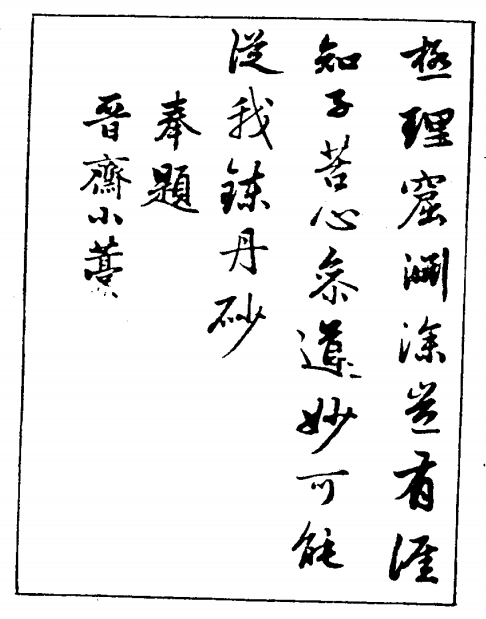 極理窟淵深豈有涯
知子苦心參道妙可能
從我鍊丹砂
奉題
晉齋小藁